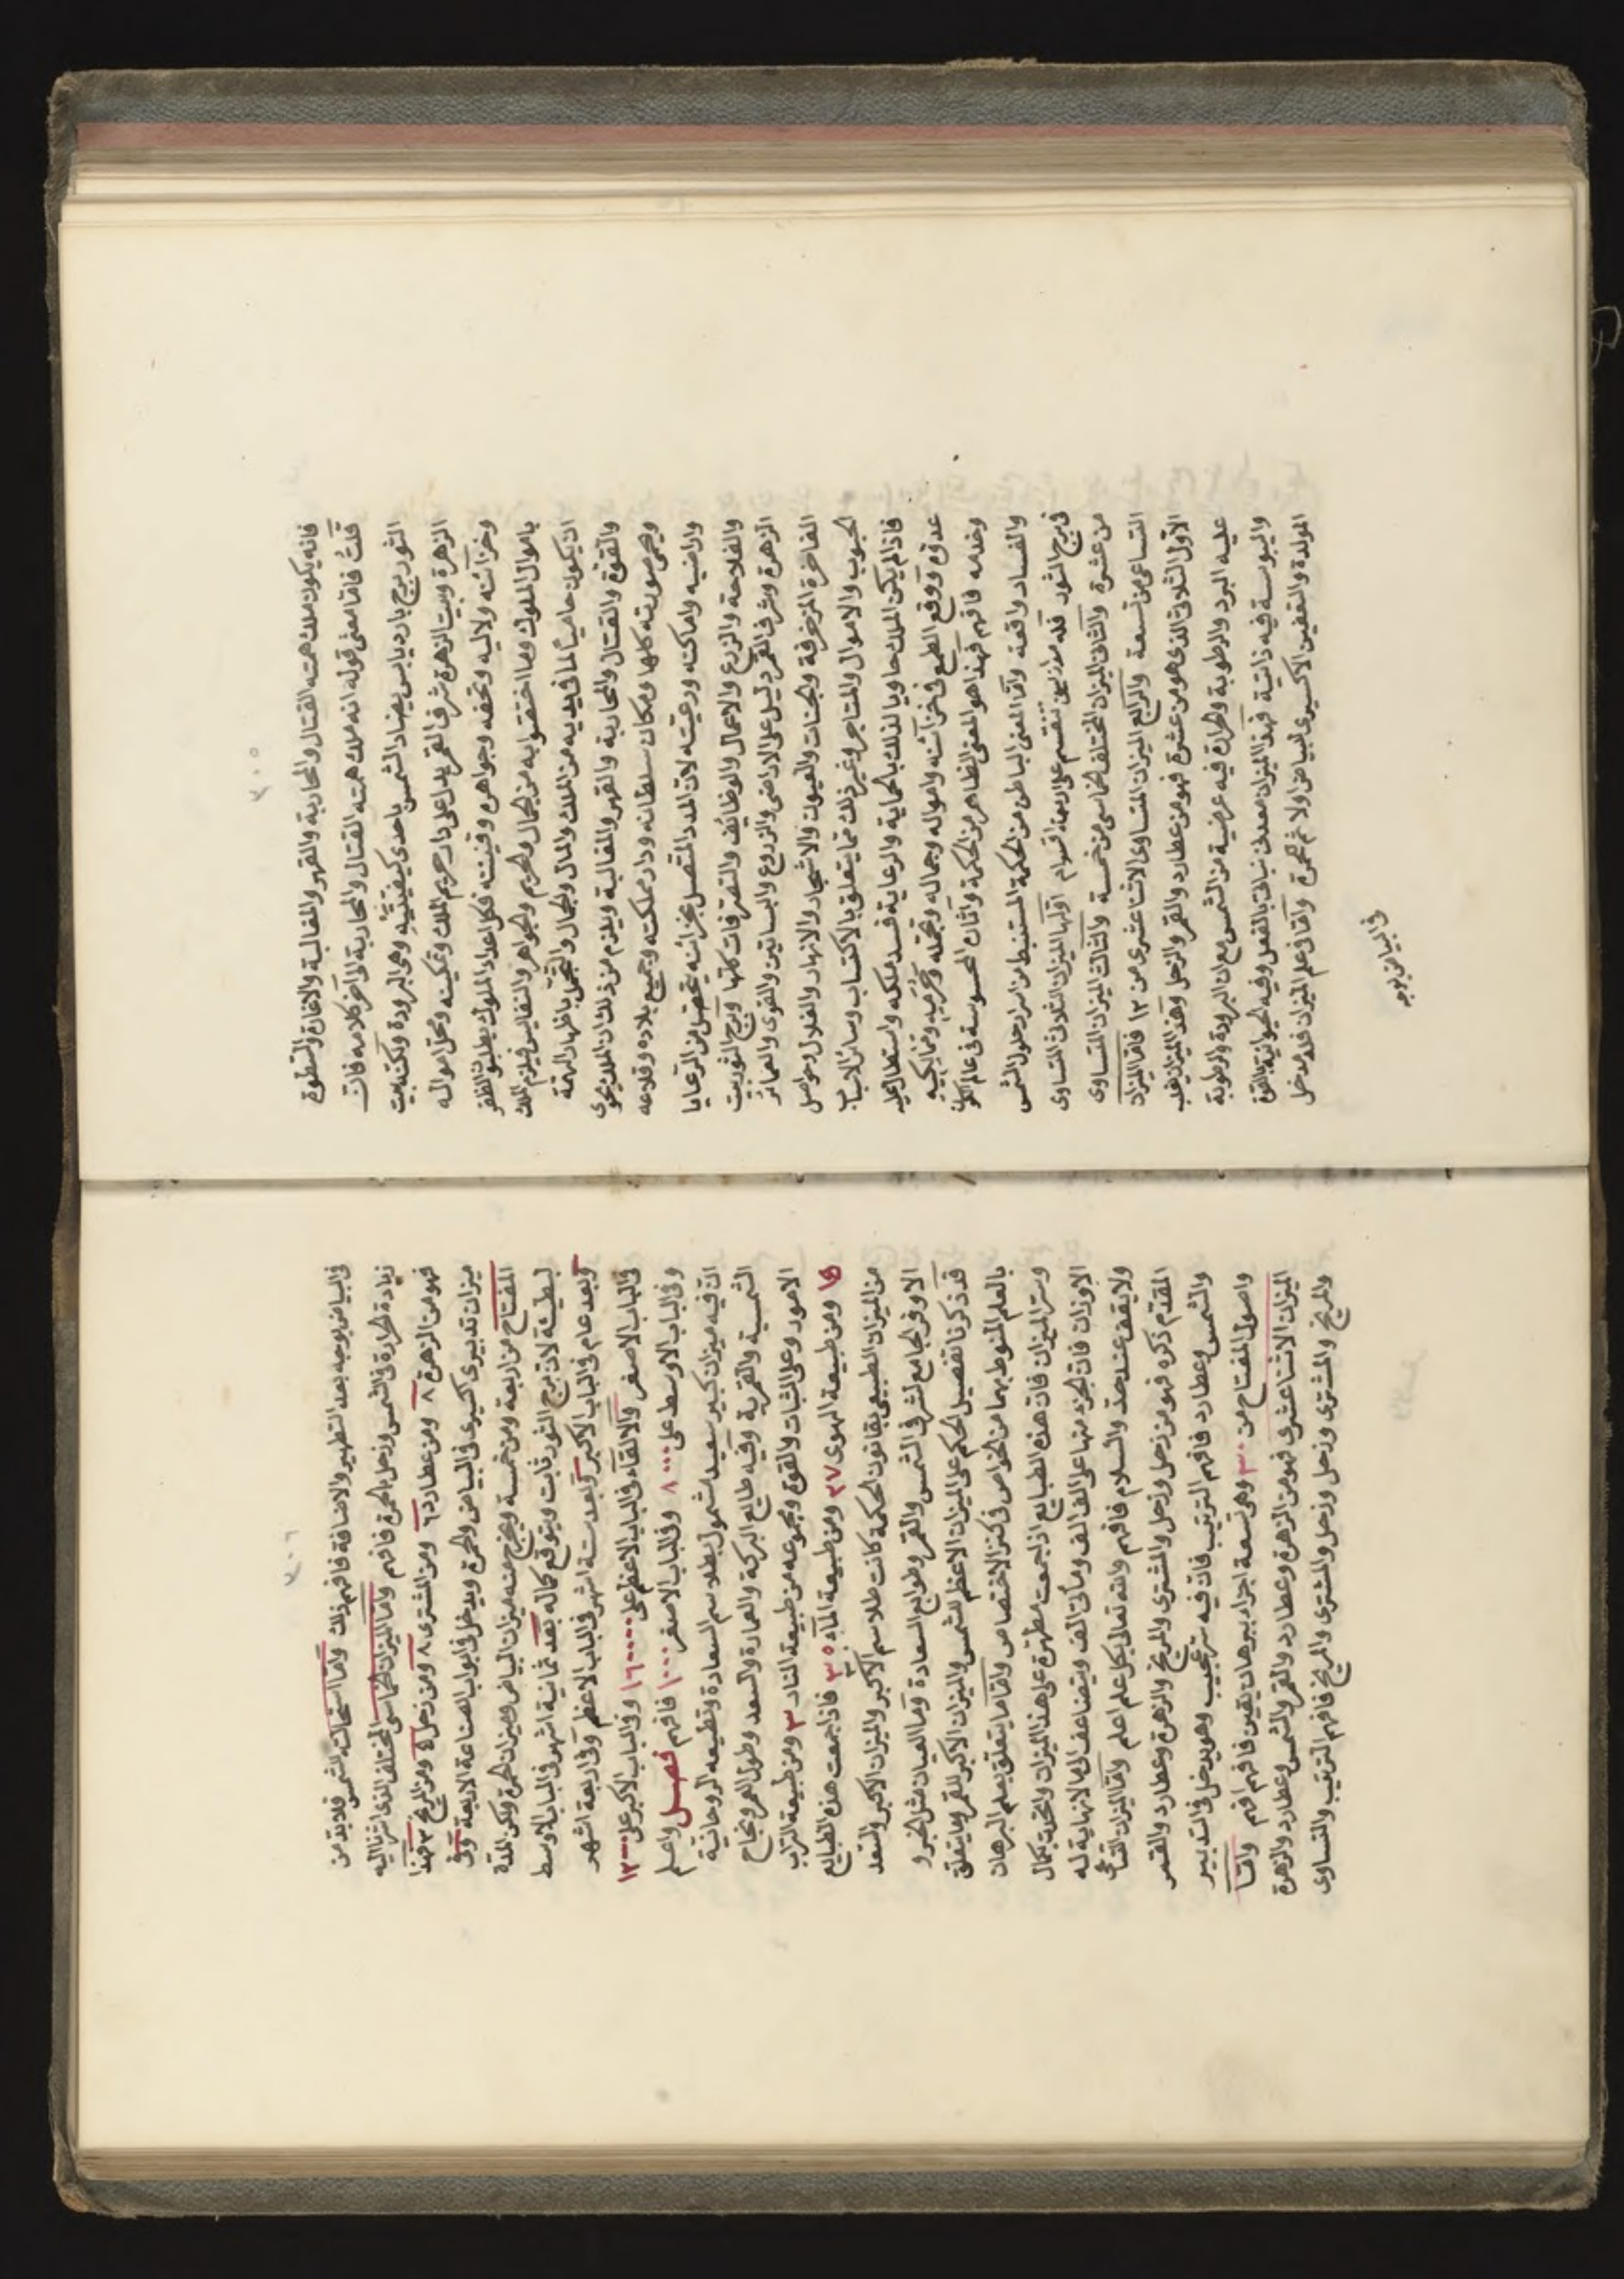 ٣٠٥
فانه يكون ملك همته القتال والمحاربة والقهر والمغالبة والاغارة والسطوة
قلتُ فاما معنى قوله انه ملك همته القتال والمحاربة الى آخر كلامه فان
الثور برج بارد يابس يضاد الشمس باحدى كيفيتيه وهى البرودة ولكنه بيت
الزهرة وبيت الزهرة شرف القمر يدل على دار حريم الملك وتمكينه ومحل امواله
وخزائنه ولآليه وتحفه وجواهره وقينته فكل اعداد الملوك يطلبون الظفر
باموال الملوك وما اختصوا به من الجمال والحريم والجواهر والنفايس فيلزم الملك
ان يكون حاميًا لما فى يديه من الملك والمال والجمال والتجمل باظهار الهمة
والقوة والقتال والمحاربة والقهر والمغالبة ويلزم من ذلك ان الملك يحوى
ويحمى صورته كلها ومكان سلطانه ودار مملكته وجميع بلاده وقلاعه
واراضيه واماكنه ورعيته لان المدد المتصل بخزائنه يتحصل من الرعايا
والفلاحة والزرع والاعمال والوظائف والتصرفات كلها وبرج الثور بيت
الزهرة وشرف القمر دليل على الاراضى والزروع والبساتين والقرى والعمائر
الفاخرة المزخرفة والجنات والعيون والاشجار والانهار والغلال وحواصل
الحبوب والاموال والمتاجر وغير ذلك مما يتعلق بالاكتساب وسائر الاسباب
فاذا لم يكن الملك حاويا لذلك بالحماية والرعاية فسد ملكه واستطار عليه
عدوّه ووقع الطمع فى خزآئنه وامواله وجماله وتجمله وحرمه ومماليكه
وخدمه فافهم فهذا هو المعنى الظاهر من الحكمة واثان المحسوسة فى عالم الكون
والفساد واقعة وامّا المعنى الباطن من الحكمة المستنبط من اسرار حلول الشمس
فى برج الثور فله موازين تنقسم على اربعة اقسام اولها الميزان الثلاثى المتساوى
من عشرة والثانى الميزان المختلف الخماسى من خمسة والثالث الميزان المتساوى
التساعى من تسعة والرابع الميزان المتساوى الاثنا عشرى من ١٢ فاما الميزان
الاول الثلاثى الذى هو من عشرة فهو من عطارد والقمر والزحل وهذا الميزان يغلب
عليه البرد والرطوبة والحرارة فيه عرضية من الشمس مع ان البرودة والرطوبة
واليبوسة فيه ذاتية فهذا الميزان معدنى نباتى بالفعل وفيه الحيوانية بالقوة
المولدة والتعفين الاكسيرى لبياض اولا ثم الحمرة وامّا فى علم الميزان فله مدخل
فى البياض بوجه
٣٠٦
فى البياض بوجه بعد التطهير والاضافة فافهم ذلك واما استحالت الشمس فلا بد من
زيادة الحرارة فى الشمس وزحل بالحمرة فافهم واما الميزان الخماسى المختلف الذى اشرنا اليه
فهو من الزهرة ٨ ومن عطارد ٦ ومن المشترى ٨ ومن زحل ٥ ومن المريخ ٣ فهذا
ميزان تدبيرى اكسيرى فى البياض والحمرة ويدخل فى ابواب الصناعة الاربعة وفى
المفتاح من اربعة ومن خمسة ويخرج منه ميزان البياض وميزان الحمرة ولكن المدة
بطيئة لان برج الثور ثابت ويتوقع كماله بعد ثمانية اشهر فى الباب الاوسط
وبعد عام فى الباب الاكبر وبعد ستة اشهر فى الباب الاعظم وفى اربعة اشهر
فى الباب الاصغر والالقاء فى الباب الاعظم على ١٦٠٠٠ وفى الباب الاكبر على ١٢٠٠٠
وفى الباب الاوسط على ٨٠٠٠ وفى الباب الاصغر ١٠٠٠ فافهم فصل واعلم
ان فيه ميزان كبير سعيد الشمول بطلاسم السعادة وتطبيعه الروحانية
الشمسية والقمرية وفيه طابع البركة والعمارة والسعد وطول العمر ونجاح
الامور وعلى الثبات والقوة ومجموعه من طبيعة النار ٣ ومن طبيعة التراب
١٥ ومن طبيعة الهوى ٢٧ ومن طبيعة المآء ٣٥ فاذا جمعت هذه الطبايع
من الميزان الطبيعى بقانون الحكمة كانت طلاسم الاكبر والميزان الاكبر والسعد
الاوفر الجامع لشرف الشمس والقمر وطوابع السعادة وما العيان مثل الخبر و
قد ذكرنا تفصيل الحكم على الميزان الاعظم للشمس والميزان الاكبر للقمر وما يتعلق
بالعلم المنوط بهما من الخواص فى كنز الاختصاص وامّا ما يتعلق بعلم البرهان
وستر الميزان فان هذه الطبايع اذا جمعت مطهرة على هذا الميزان واتحدت بكمال
الاوزان فان الجزء منها على الف الف ومأتى الف ويتضاعف الى ما لا نهاية له
ولا يقف عند حدّ والسلام فافهم والله تعالى بكل علم اعلم وامّا الميزان التساعى
المقدّم ذكره فهو من زحل وزحل والمشترى والمريخ والزهرة وعطارد والقمر
والشمس وعطارد فافهم الترتيب فان فيه سر عجيب وهو يدخل فى التدبير
واصول المفتاح من ٣٠ وهى تسعة اجزاء ببرهان يقين فافهم افهم وامّا
الميزان الاثنا عشرى فهو من الزهرة وعطارد والقمر والشمس وعطارد والزهرة
والمريخ والمشترى وزحل وزحل والمشترى والمريخ فافهم الترتيب والتساوى